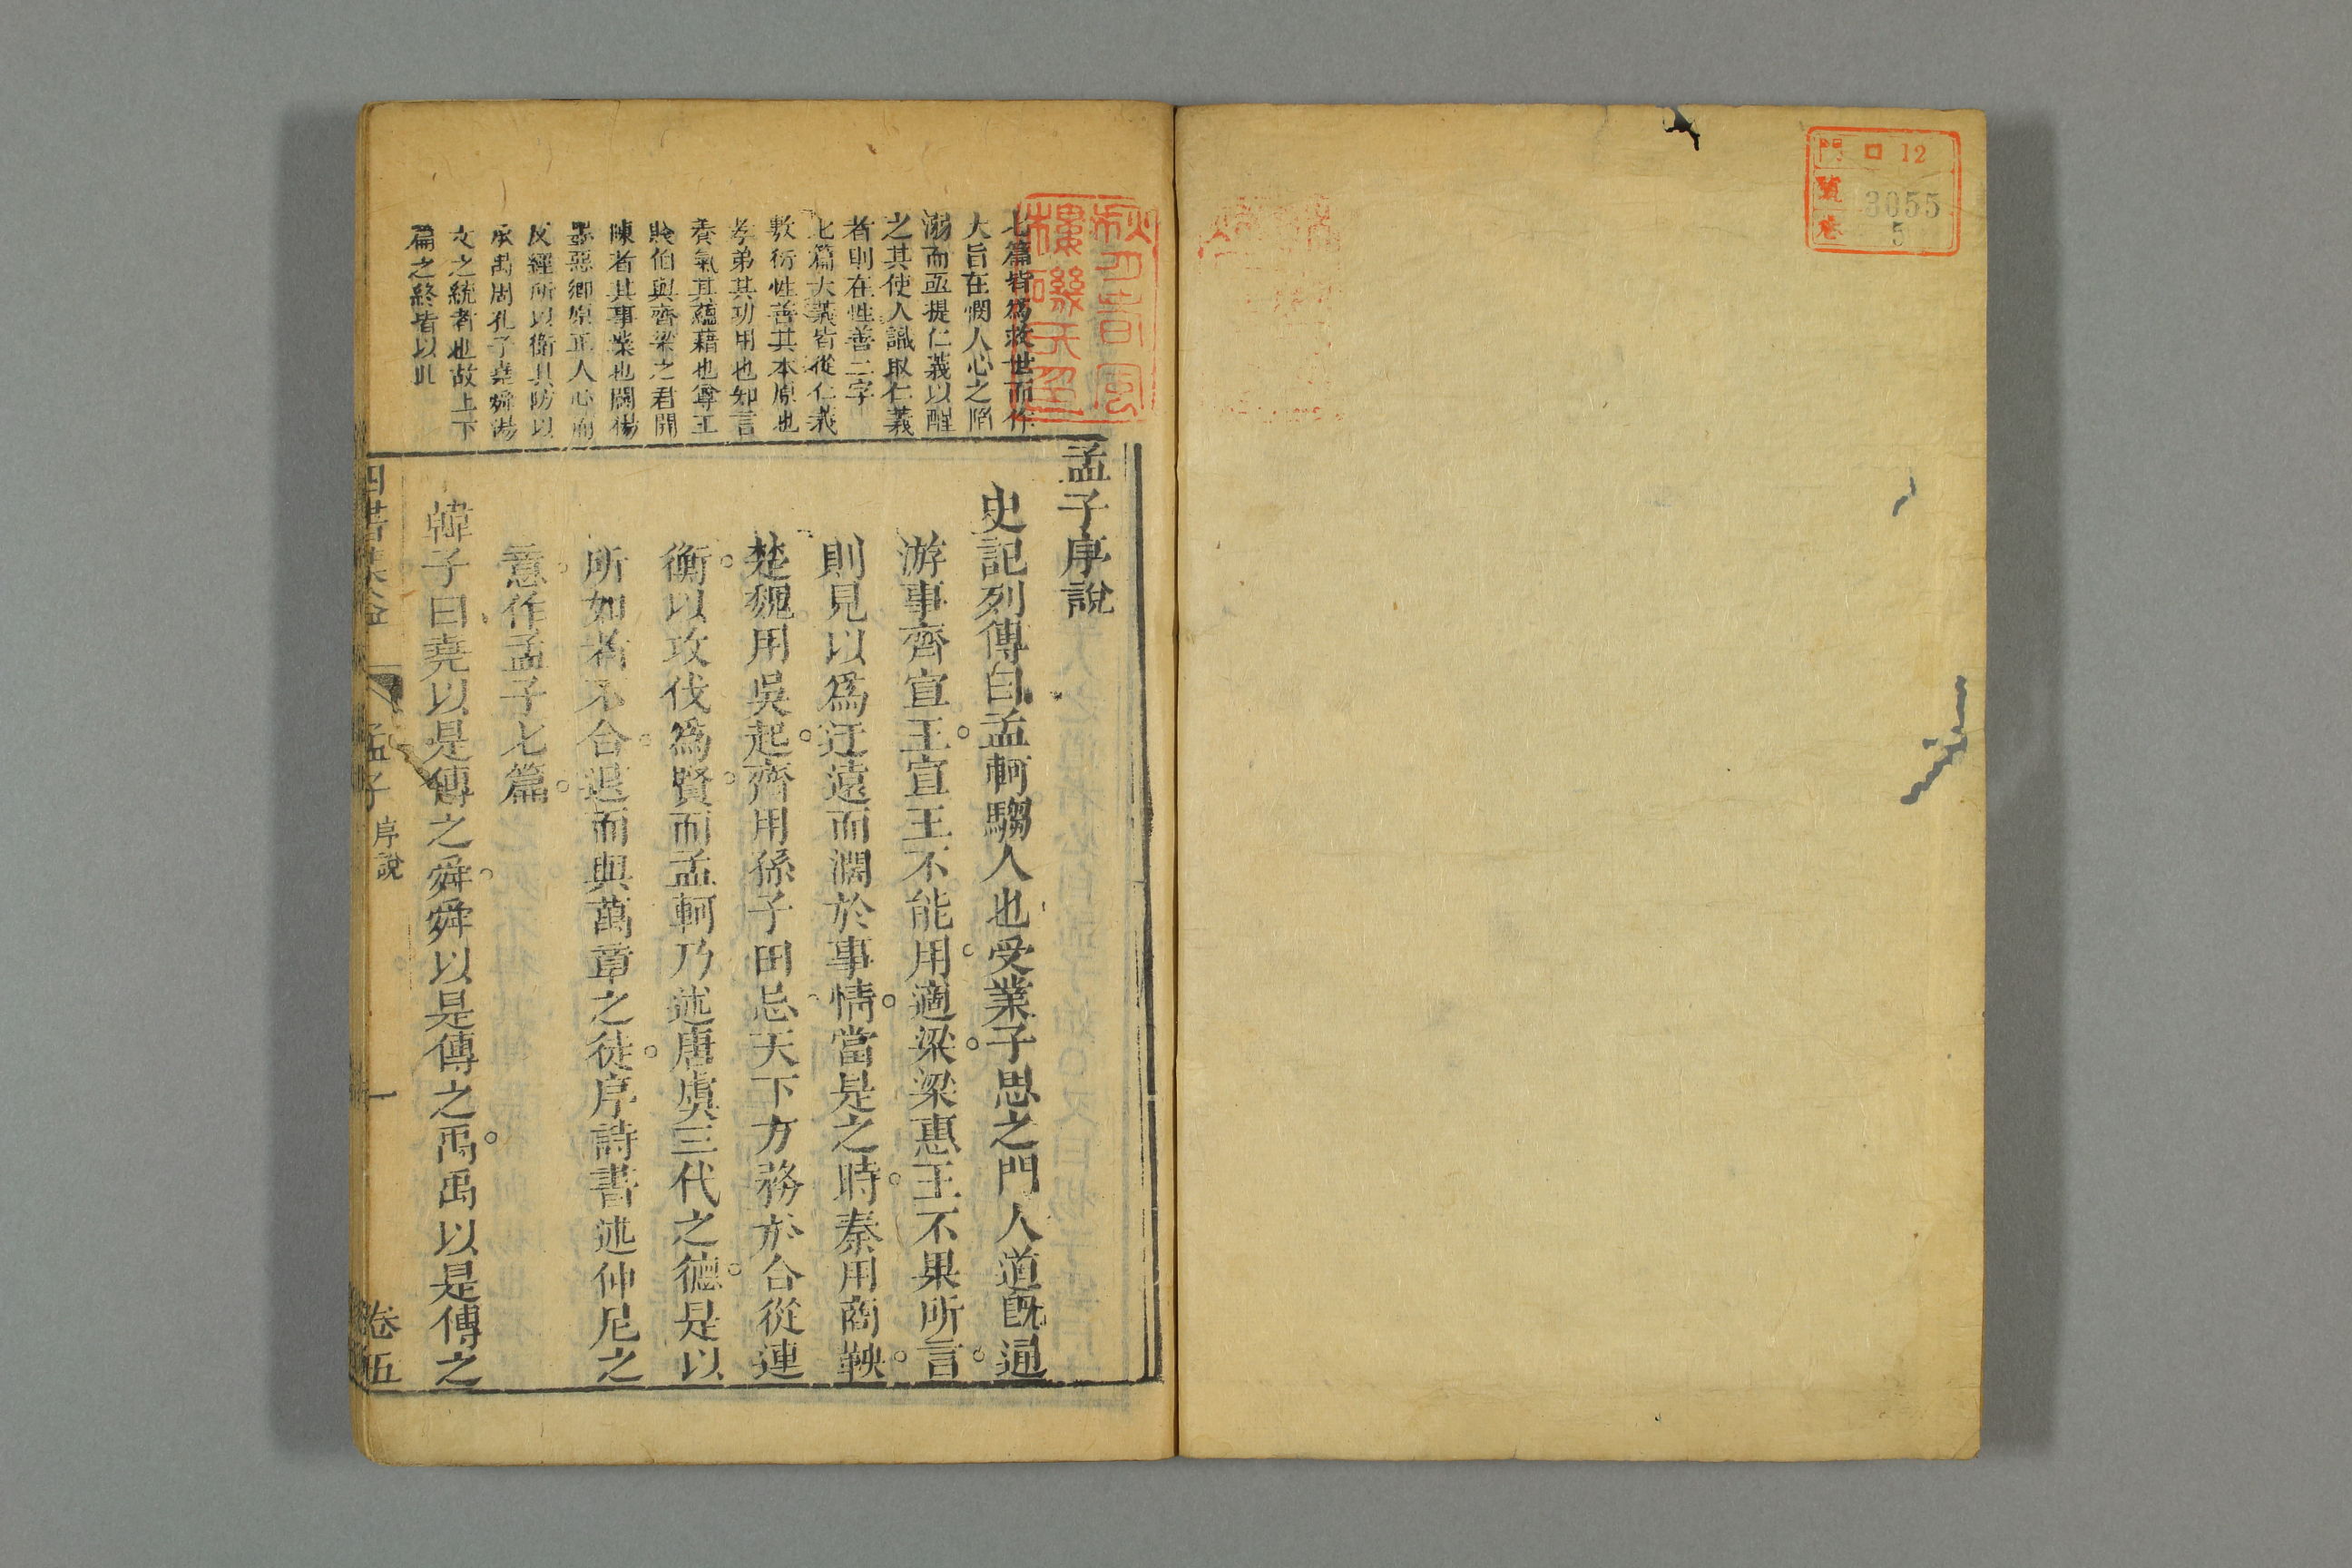 門 口 12
號 3055
卷 5
七篇皆爲救世而作
大旨在憫人心之陷
溺而亟提仁義以醒
之其使人識取仁義
者則在性善二字
七篇大義皆從仁義
敷衍性善其本原也
孝弟其功用也知言
養氣其蘊藉也尊王
賤伯與齊梁之君開
陳者其事業也闢楊
墨惡鄉原正人心而
反經所以衛其防以
承禹周孔子堯舜湯
文之統者也故上下
篇之終皆以此
孟子序說
史記列傳曰孟軻騶人也受業子思之門人道既通
游事齊宣王宣王不能用適梁梁惠王不果所言
則見以爲迂遠而濶於事情當是之時秦用商鞅
楚魏用吳起齊用孫子田忌天下方務於合從連
衡以攻伐爲賢而孟軻乃述唐虞三代之德是以
所如者不合退而與萬章之徒序詩書述仲尼之
意作孟子七篇
韓子曰堯以是傳之舜舜以是傳之禹禹以是傳之
四書 孟子 序說 一 卷五